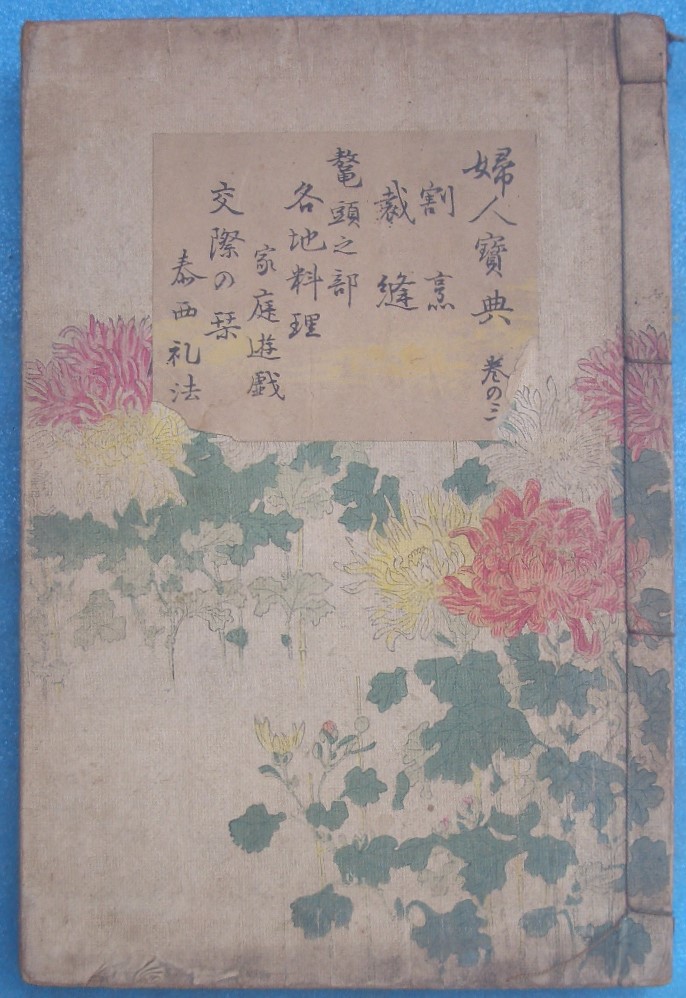 婦人寶典 巻の三
割烹
裁縫
鼇頭之部
各地料理
家庭遊戯
交際の栞
泰西礼法